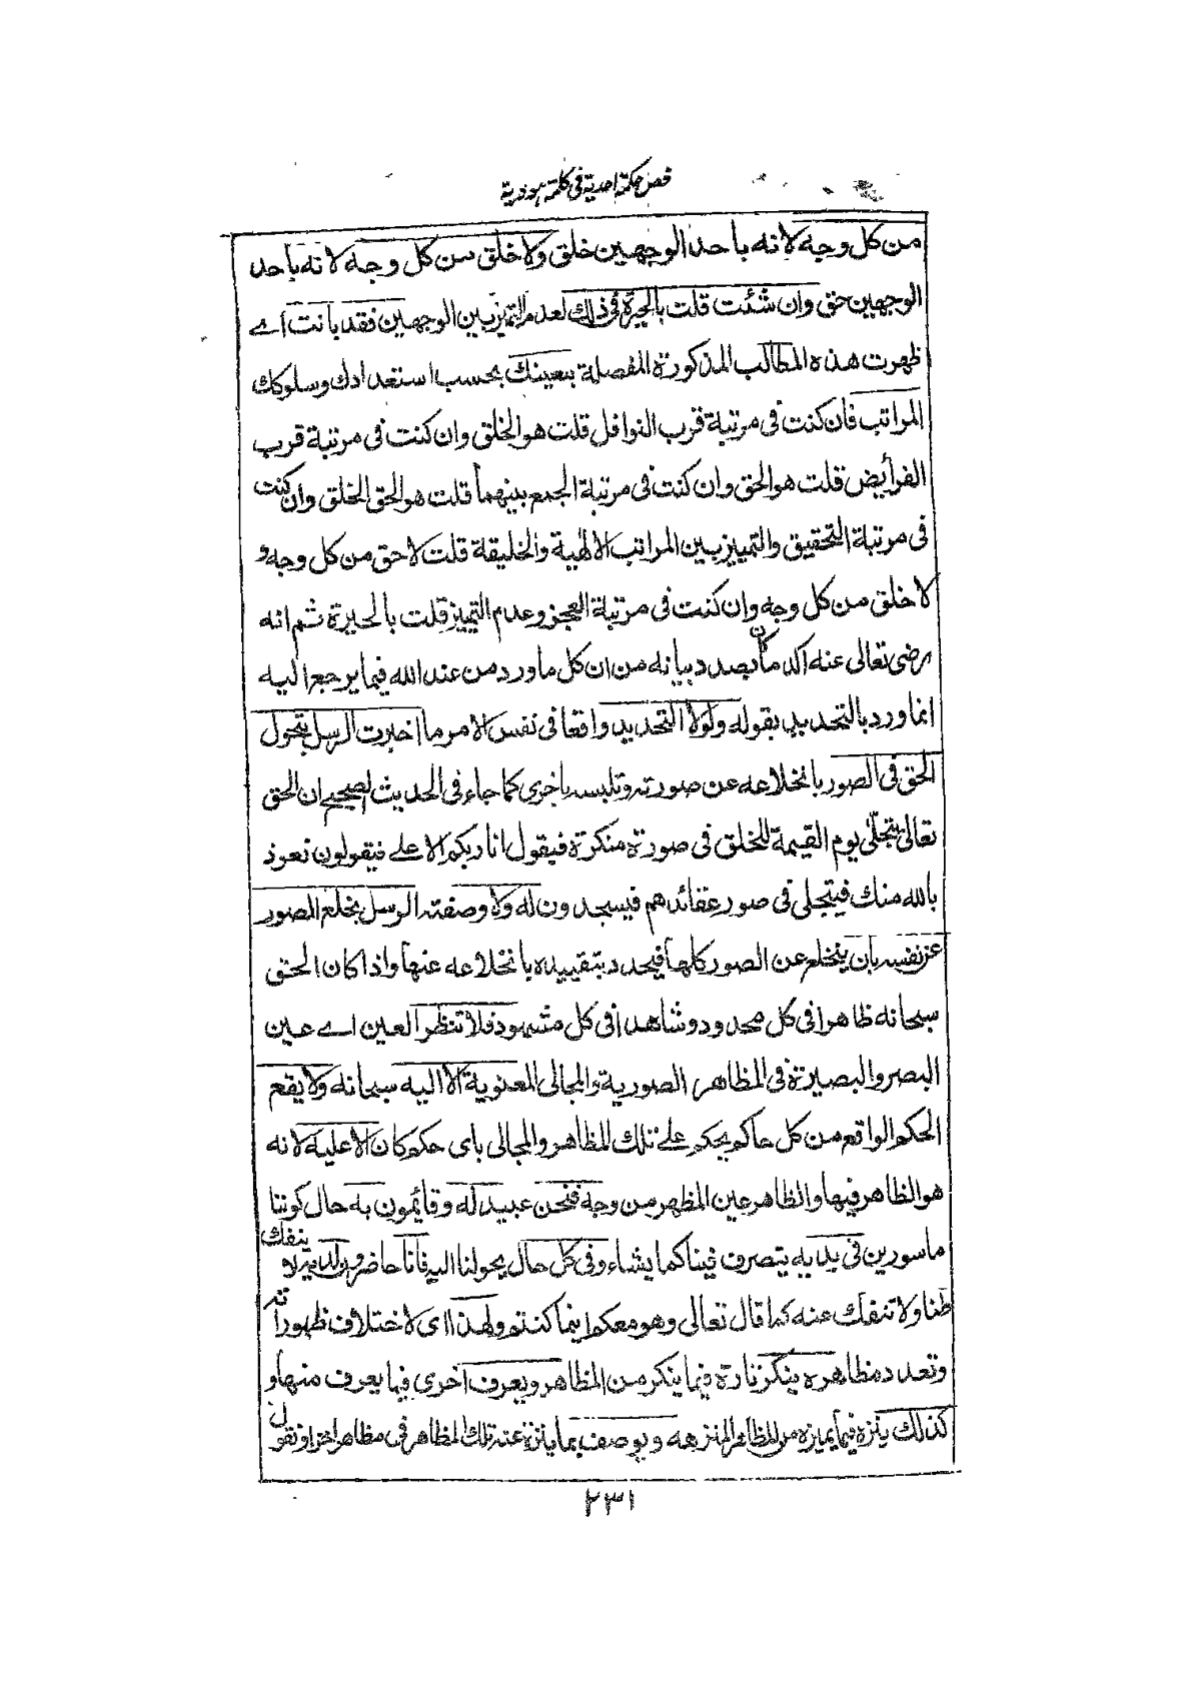 فص حكمة احدية فى كلمة هودية
من كل وجه لانه باحد الوجهين خلق ولا خلق من كل وجه لانه باحد
الوجهين حق وان شئت قلت بالحيرة فى ذلك لعدم التميز بين الوجهين فقد بانت اے
ظهرت هذه المطالب المذكورة المفصلة بتعينك بحسب استعدادك وسلوكك
المراتب فان كنت فى مرتبة قرب النوافل قلت هو الخلق وان كنت فى مرتبة قرب
الفرائض قلت هو الحق وان كنت فى مرتبة الجمع بينهما قلت هو الحق الخلق وان كنت
فى مرتبة التحقيق والتمييز بين المراتب الالهية والخليقة قلت لا حق من كل وجه و
لا خلق من كل وجه وان كنت فى مرتبة العجز وعدم التميز قلت بالحيرة ثم انه
رضى تعالى عنه اكد ما كان بصدد بيانه من ان كل ما ورد من عند الله فيما يرجع اليه
انما ورد بالتحديد بقوله ولولا التحديد واقعا فى نفس الامر ما اخبرت الرسل بتحول
الحق فى الصور بانخلاعه عن صورته وتلبسه باخرى كما جاء فى الحديث الصحيح ان الحق
تعالى يتجلى يوم القيمة للخلق فى صورة منكرة فيقول انا ربكم الاعلے فيقولون نعوذ
بالله منك فيتجلى فى صور عقائدهم فيسجدون له ولا وصفته الرسل بخلع الصور
عن نفسه بان ينخلع عن الصور كلها فيحدد بتقييده بانخلاعه عنها واذا كان الحق
سبحانه ظاهرا فى كل محدود وشاهدا فى كل مشهود فلا تنظر العين اے عين
البصر والبصيرة فى المظاهر الصورية والمجالى المعنوية الا اليه سبحانه ولا يقع
الحكم الواقع من كل حاكم يحكم علے تلك المظاهر والمجالى باى حكم كان الا عليه لانه
هو الظاهر فيها والظاهر عين المظهر من وجه فنحن عبيد له وقائمون به حال كوننا
ماسورين فى يديه يتصرف فينا كما يشاء وفى كل حال يحولنا اليه فانا حاضرون لديه لا ينفك
عنا ولا ننفك عنه كما قال تعالى وهو معكم اينما كنتم ولهذا اى لاختلاف ظهوراته
وتعدد مظاهره ينكر تارة فيما ينكر من المظاهر ويعرف اخرى فيما يعرف منها و
كذلك ينزه فيما ينزه من المظاهر المنزهه ويوصف بما ينزه عنه تلك المظاهر فى مظاهر اخر او نقول
۲۳۱